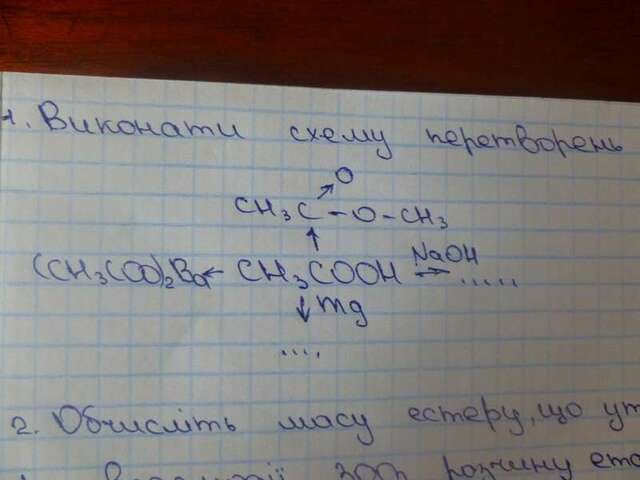 1. Виконати схему перетворень
O
CH₃C-O-CH₃
↑
(CH₃COO)₂Ba ← CH₃COOH NaOH → .....
↓ Mg
....
2. Обчисліть масу естеру, що ут
300г розчину ета